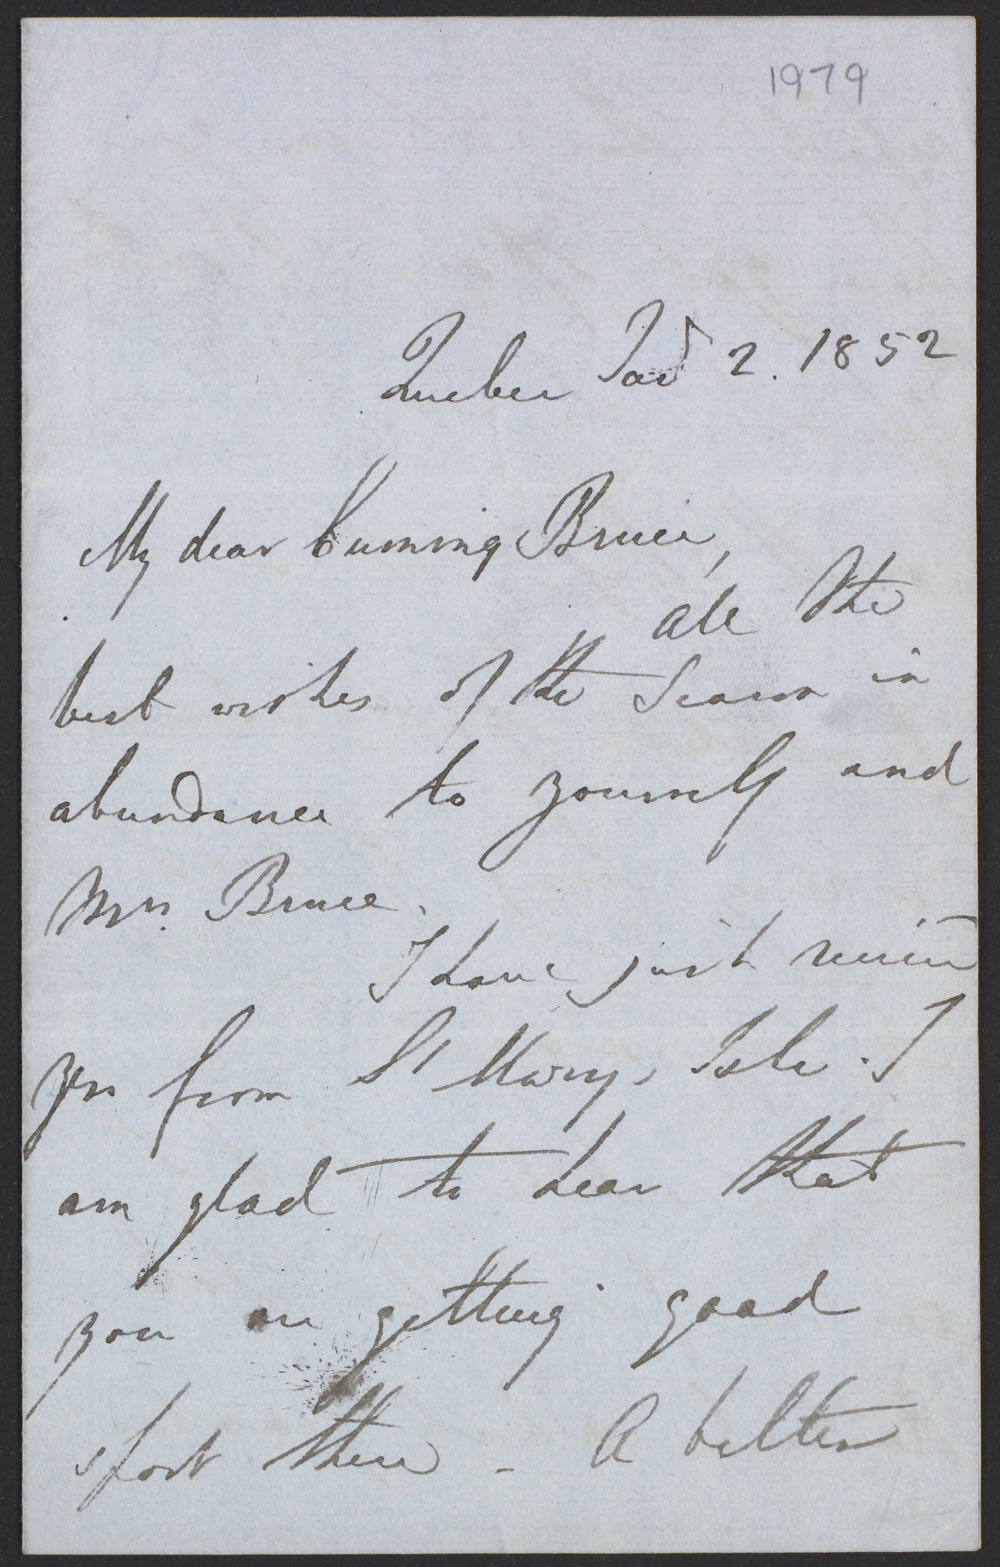 1979
Quebec Jany 2. 1852
My dear Cumming Bruce,
All the
best wishes of the Season in
abundance to yourself and
Mrs. Bruce.
I have just received
yrs from St Marys Isle. I
am glad to hear that
you are getting good
sport there - A better